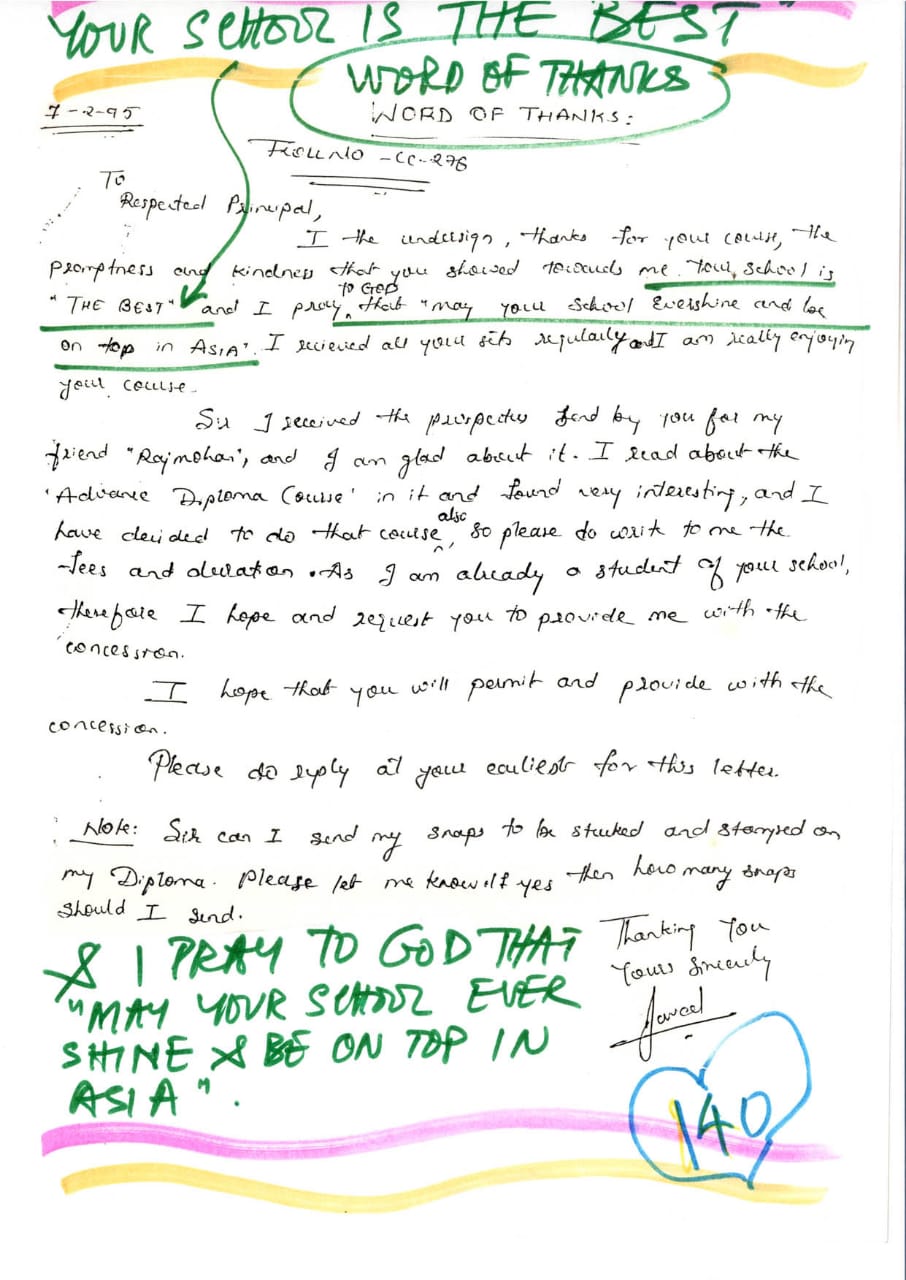 YOUR SCHOOL IS THE BEST"
WORD OF THANKS
7-2-95
WORD OF THANKS:
Roll No - CC-276
To
Respected Principal,
I the undersign, thanks for your course, the
promptness and kindness that you showed towards me. Your, school is
"THE BEST" and I pray to GOD, that "may your school Evershine and be
on top in ASIA". I recieved all your sets regularly and I am really enjoying
your course.
Sir I received the prospectus send by you for my
friend "Rajmohan", and I am glad about it. I read about the
'Advance Diploma Course' in it and found very interesting, and I
have decided to do that course also, so please do write to me the
fees and duration. As I am already a student of your school,
therefore I hope and request you to provide me with the
concession.
I hope that you will permit and provide with the
concession.
Please do reply at your earliest for this letter.
Note: Sir can I send my snaps to be stucked and stamped on
my Diploma. Please let me know if yes then how many snaps
should I send.
Thanking You
Yours Sincerely
& I PRAY TO GOD THAT
"MAY YOUR SCHOOL EVER
SHINE & BE ON TOP IN
ASIA".
140